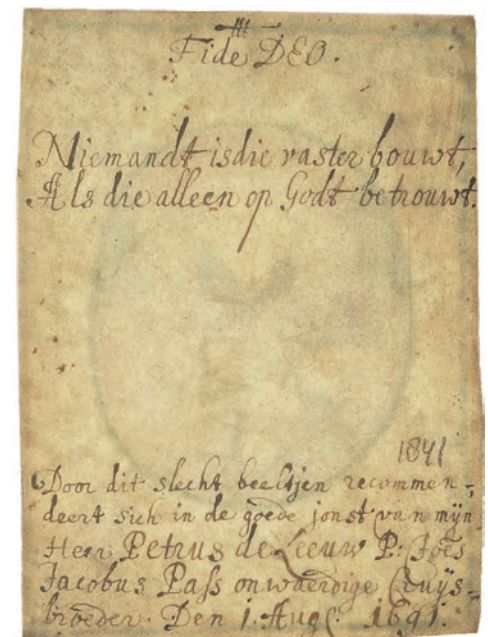 Fide DEO.
Niemandt is die vaster bouwt,
Als die alleen op Godt betrouwt.
1841
Door dit slecht beeltjen recommen-
deert sich in de goede jonst van mijn
Heer Petrus de Leeuw P: Joes
Jacobus Pass onwaerdige Cruijs-
broeder. Den 1. Aug. 1691.